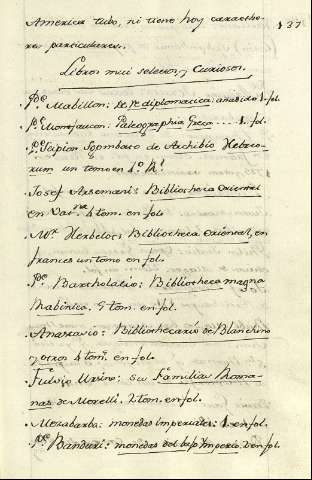 137
America tubo, ni tiene hoy caracthe-
res particulares.
Libros mui selectos y Curiosos.
Pe. Mabillon: De re diplomacica: añadido 1. fol.
Pe. Monfaucon: Paleographia Greca ... 1. fol.
Pe. Scipion Sgombato de Archibio Hebreo-
rum un tomo en 4º
Josef Assemani: Bibliotheca Oriental
en 4 tom. en fol.
Mr. Herbelot: Bibliotheca Oriental, en
frances un tomo en fol.
Pe. Bartholacio: Bibliotheca magna
Rabinica. 5 tom. en fol.
Anastasio: Bibliothecario de Blanchino
y otros 4 tom. en fol.
Fulvio Ursino: Su Familias Roma-
nas de Morelli. 2 tom. en fol.
Mezabarba: monedas Imperiales: 1. en fol.
Pe. Banduri: monedas del bajo Imperio. 2 en fol.